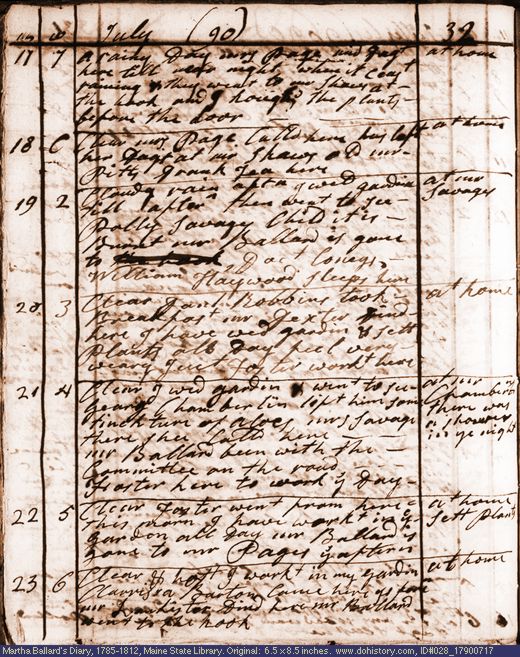 July (90) 39
17 7 a rainy Day mrs Page and Gagt at home
here till near night when it ceast
raining they went to mr Shaws at
the hook and I houghd the plants
before the door
18 C Clear mrs Page Calld here has left at home
her Gagt at mr Shaws &
Pitts Drank Tea here
19 2 Cloudy rain after I weed gardin at mr
till after then went to see Savages
Polly Savages Child it is
Burnt mr Ballard is gone
to Doct Conys
William Haywood Sleeps here
20 3 Clear Saml Robbins took at home
Breakfast mr Dexter Dind
here I have weed gardin & sett
Plants all Day feel very
weary workt here
21 4 Clear I wed gardin & went to see at mr
George Chamberlin left him som Chamberlins
tinckture of aloes mrs Savage there was
there shee Calld here a shower
mr Ballard been with the in ye night
Committee on the road
Foster here to work y Day
22 5 Clear Foster went from here at home
this morn I have workt in ye sett plants
gardin all Day mr Ballard is
gone to mr Pages y aftern
23 6 Clear & hott I workt in my gardin at home
Clarrissa Barton Came here as
mr Dind here mr Ballard
went to the hook
Martha Ballard's Diary, 1785-1812, Maine State Library. Original: 6.5 x 8.5 inches. www.dohistory.com, ID#028_17900717